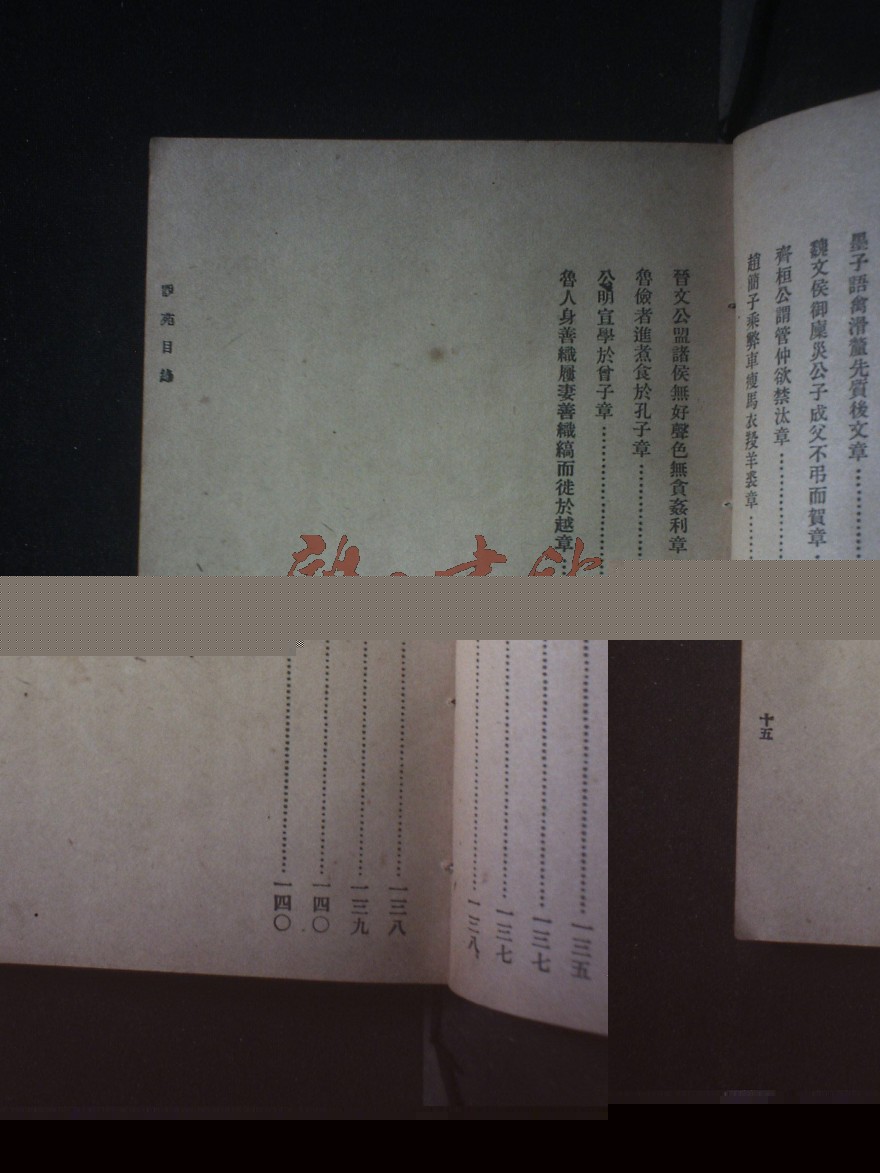 墨子語禽滑釐先質後文章……一三五
魏文侯御廩災公子成父不弔而賀章……一三七
齊桓公謂管仲欲禁汰章……一三七
趙簡子乘弊車瘦馬衣羖羊裘章……一三八
晉文公盟諸侯無好聲色無貪姦利章……一三八
魯儉者進煮食於孔子章……一三九
公明宣學於曾子章……一四〇
魯人身善織屨妻善織縞而徙於越章……一四〇
說苑目錄
十五